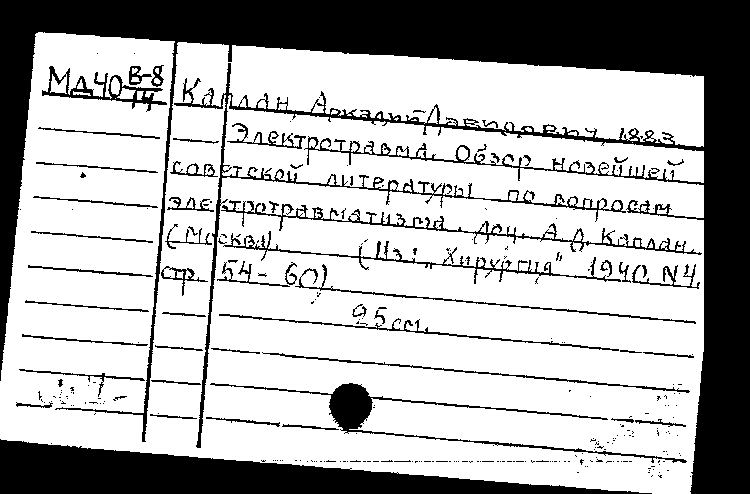 Мд40 В-8/14 Каплан, Аркадий Давидович, 1883
Электротравма. Обзор новейшей
советской литературы по вопросам
электротравматизма. доц. А. Д. Каплан.
(Москва). (Из: „Хирургия" 1940. N4.
стр. 54-60).
25 см.